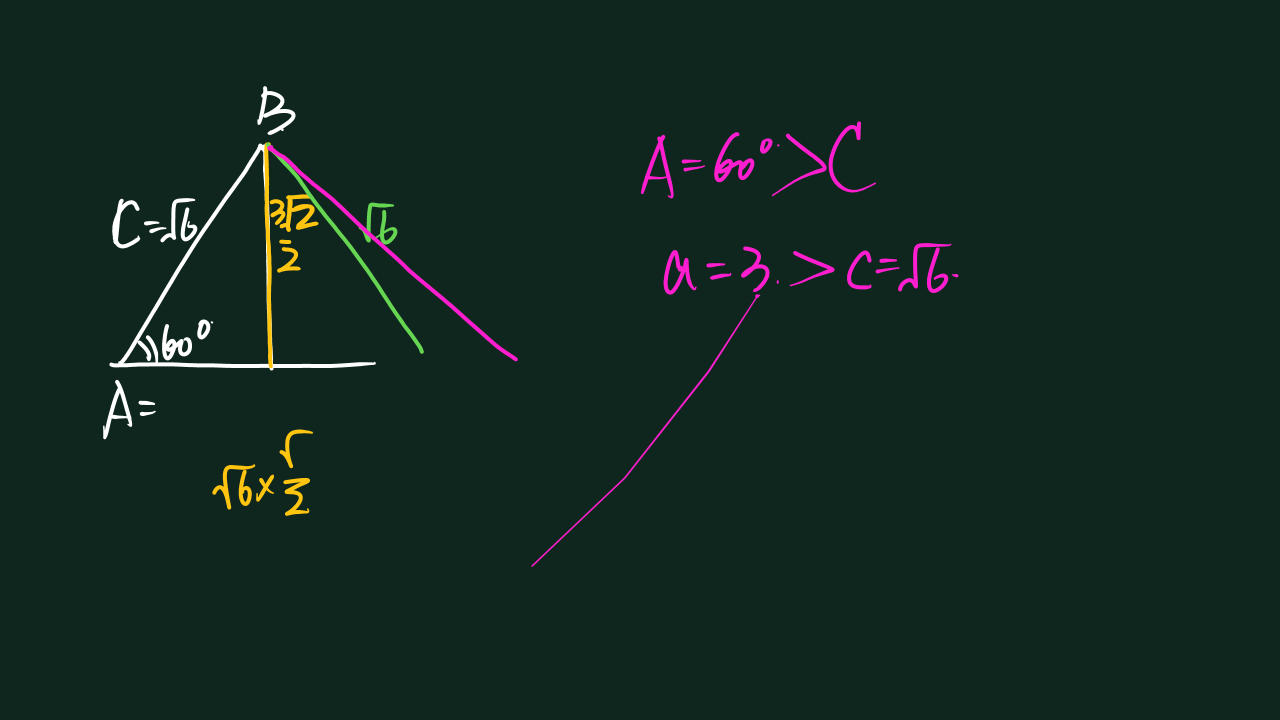 B
C=√6
3√2/2
√6
60°
A=
√6×√/2
A=60°>C
a=3.>c=√6.